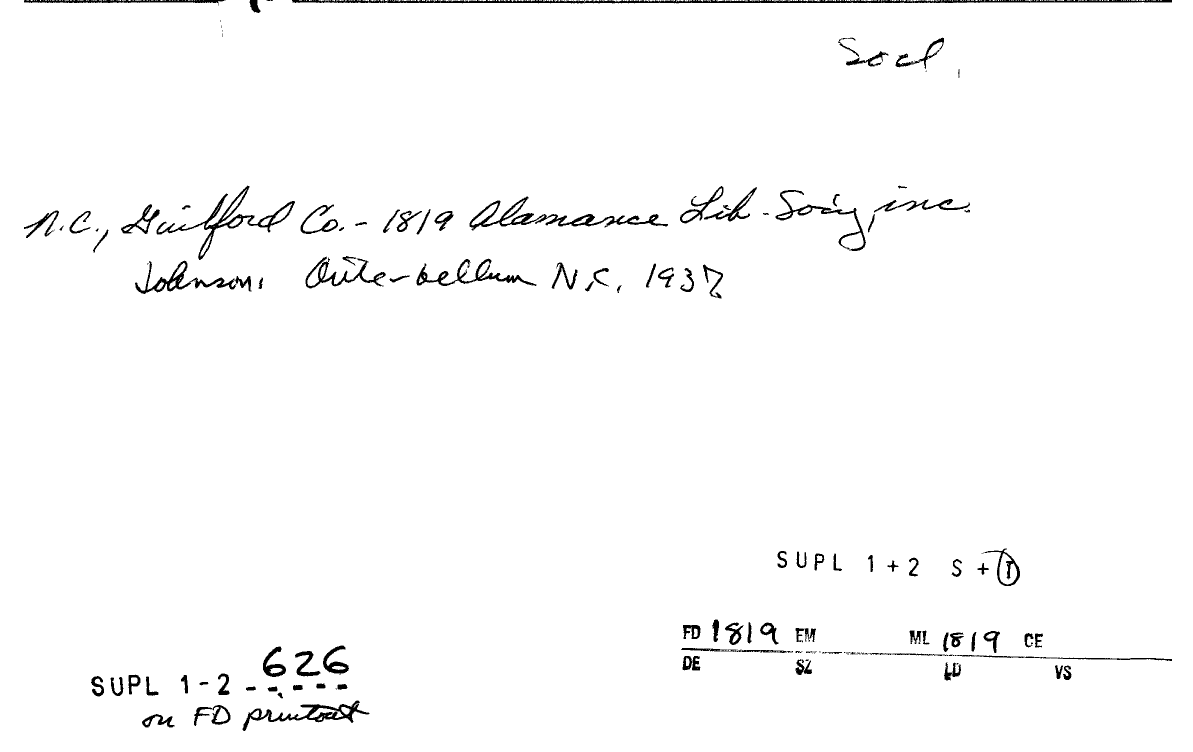 Socl.
N.C., Guilford Co. - 1819 Alamance Lib. Soc'y, inc.
Johnson: Ante-bellum N.C. 1937
SUPL 1+2 S + T
FD 1819 EM ML 1819 CE
DE SZ LD VS
SUPL 1-2 - 626
on FD printout